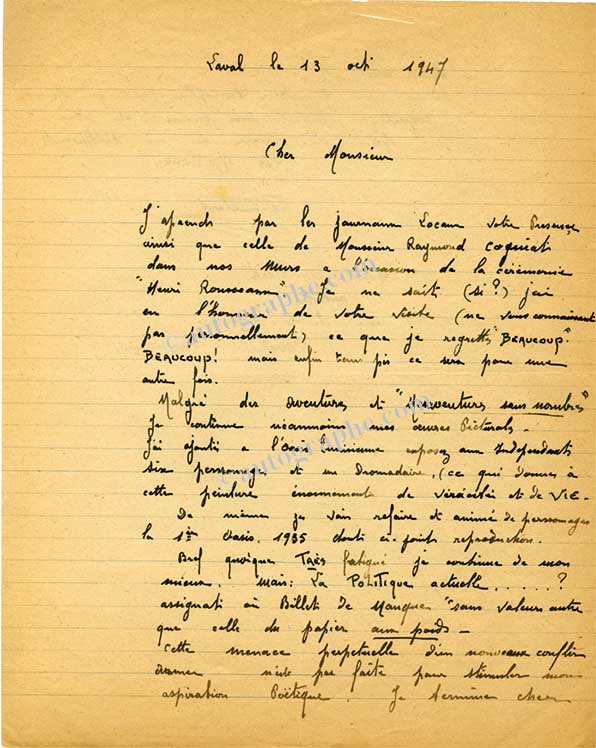 Laval le 13 oct 1947
Cher Monsieur
J'aprends par les journaux Locaux votre Presence
ainsi que celle de Monsieur Raymond Cogniat
dans nos Murs a l'occasion de la cérémonie
"Henri Rousseau". Je ne sait (si?) j'ai
eu l'honneur de votre visite (ne vous connaissant
pas personnellement) ce que je regrette "BEAUCOUP"
BEAUCOUP! mais enfin tans pis ce sera pour une
autre fois.
Malgré des aventures et "Mesaventures sans nombres"
Je continue néanmoins mes œuvres Picturals -
J'ai ajouté a l'Oasis exposez aux Independants
six personnages et un Dromadaire, (ce qui donnes à
cette peinture énormement de véracités et de VIE -
De même je vais refaire et animé de personnages
la 1ère Oasis. 1935 dont ci-joint reproduction.
Bref quoique TRÈS fatigué je continue de mon
mieux. mais: La POLITIQUE actuelle ......?
assignati ou Billet de Manque "sans valeurs autre
que celle du papier au poids -
Cette menace perpetuelle d'un nouveaux conflit
n'est pas faite pour stimuler mon
aspiration Poëtique. Je termine cher
© autographe.com
© autographe.com